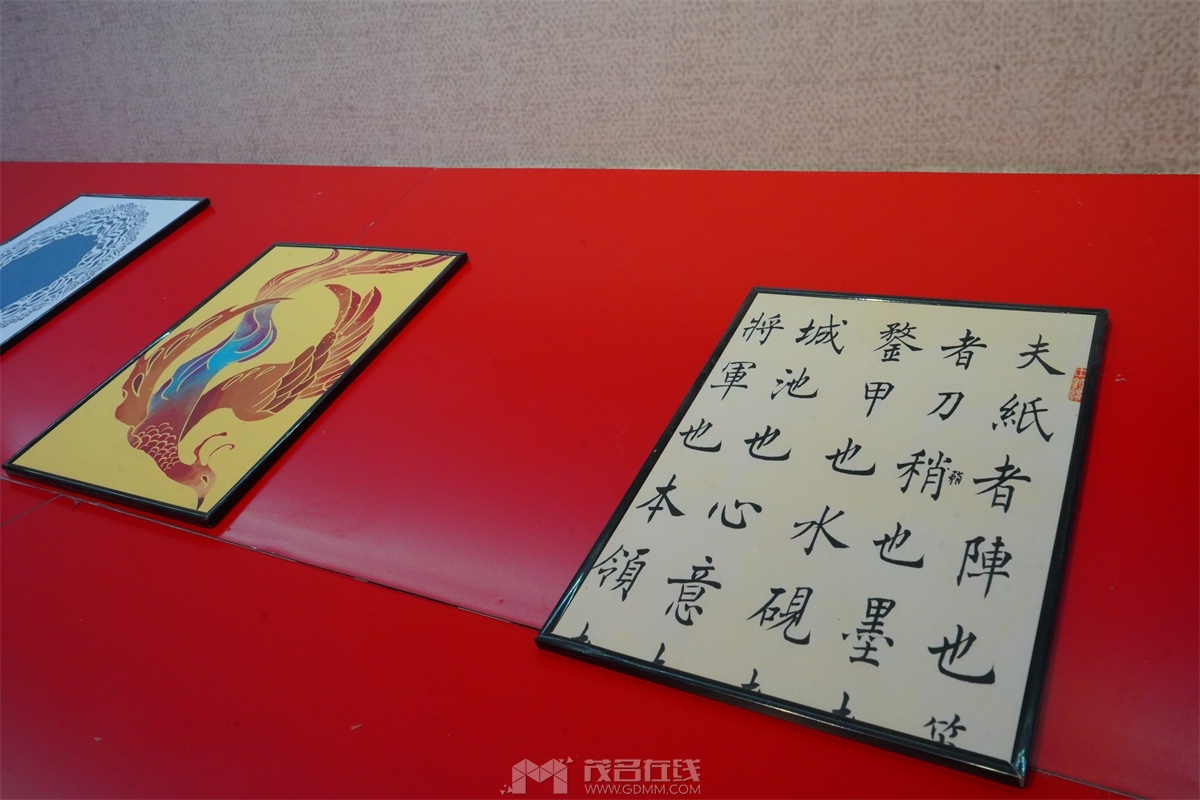 夫紙者陣也
者刀稍也墨
鍪甲也水硯
城池也心意
將軍也本領
茂名在线
WWW.GDMM.COM